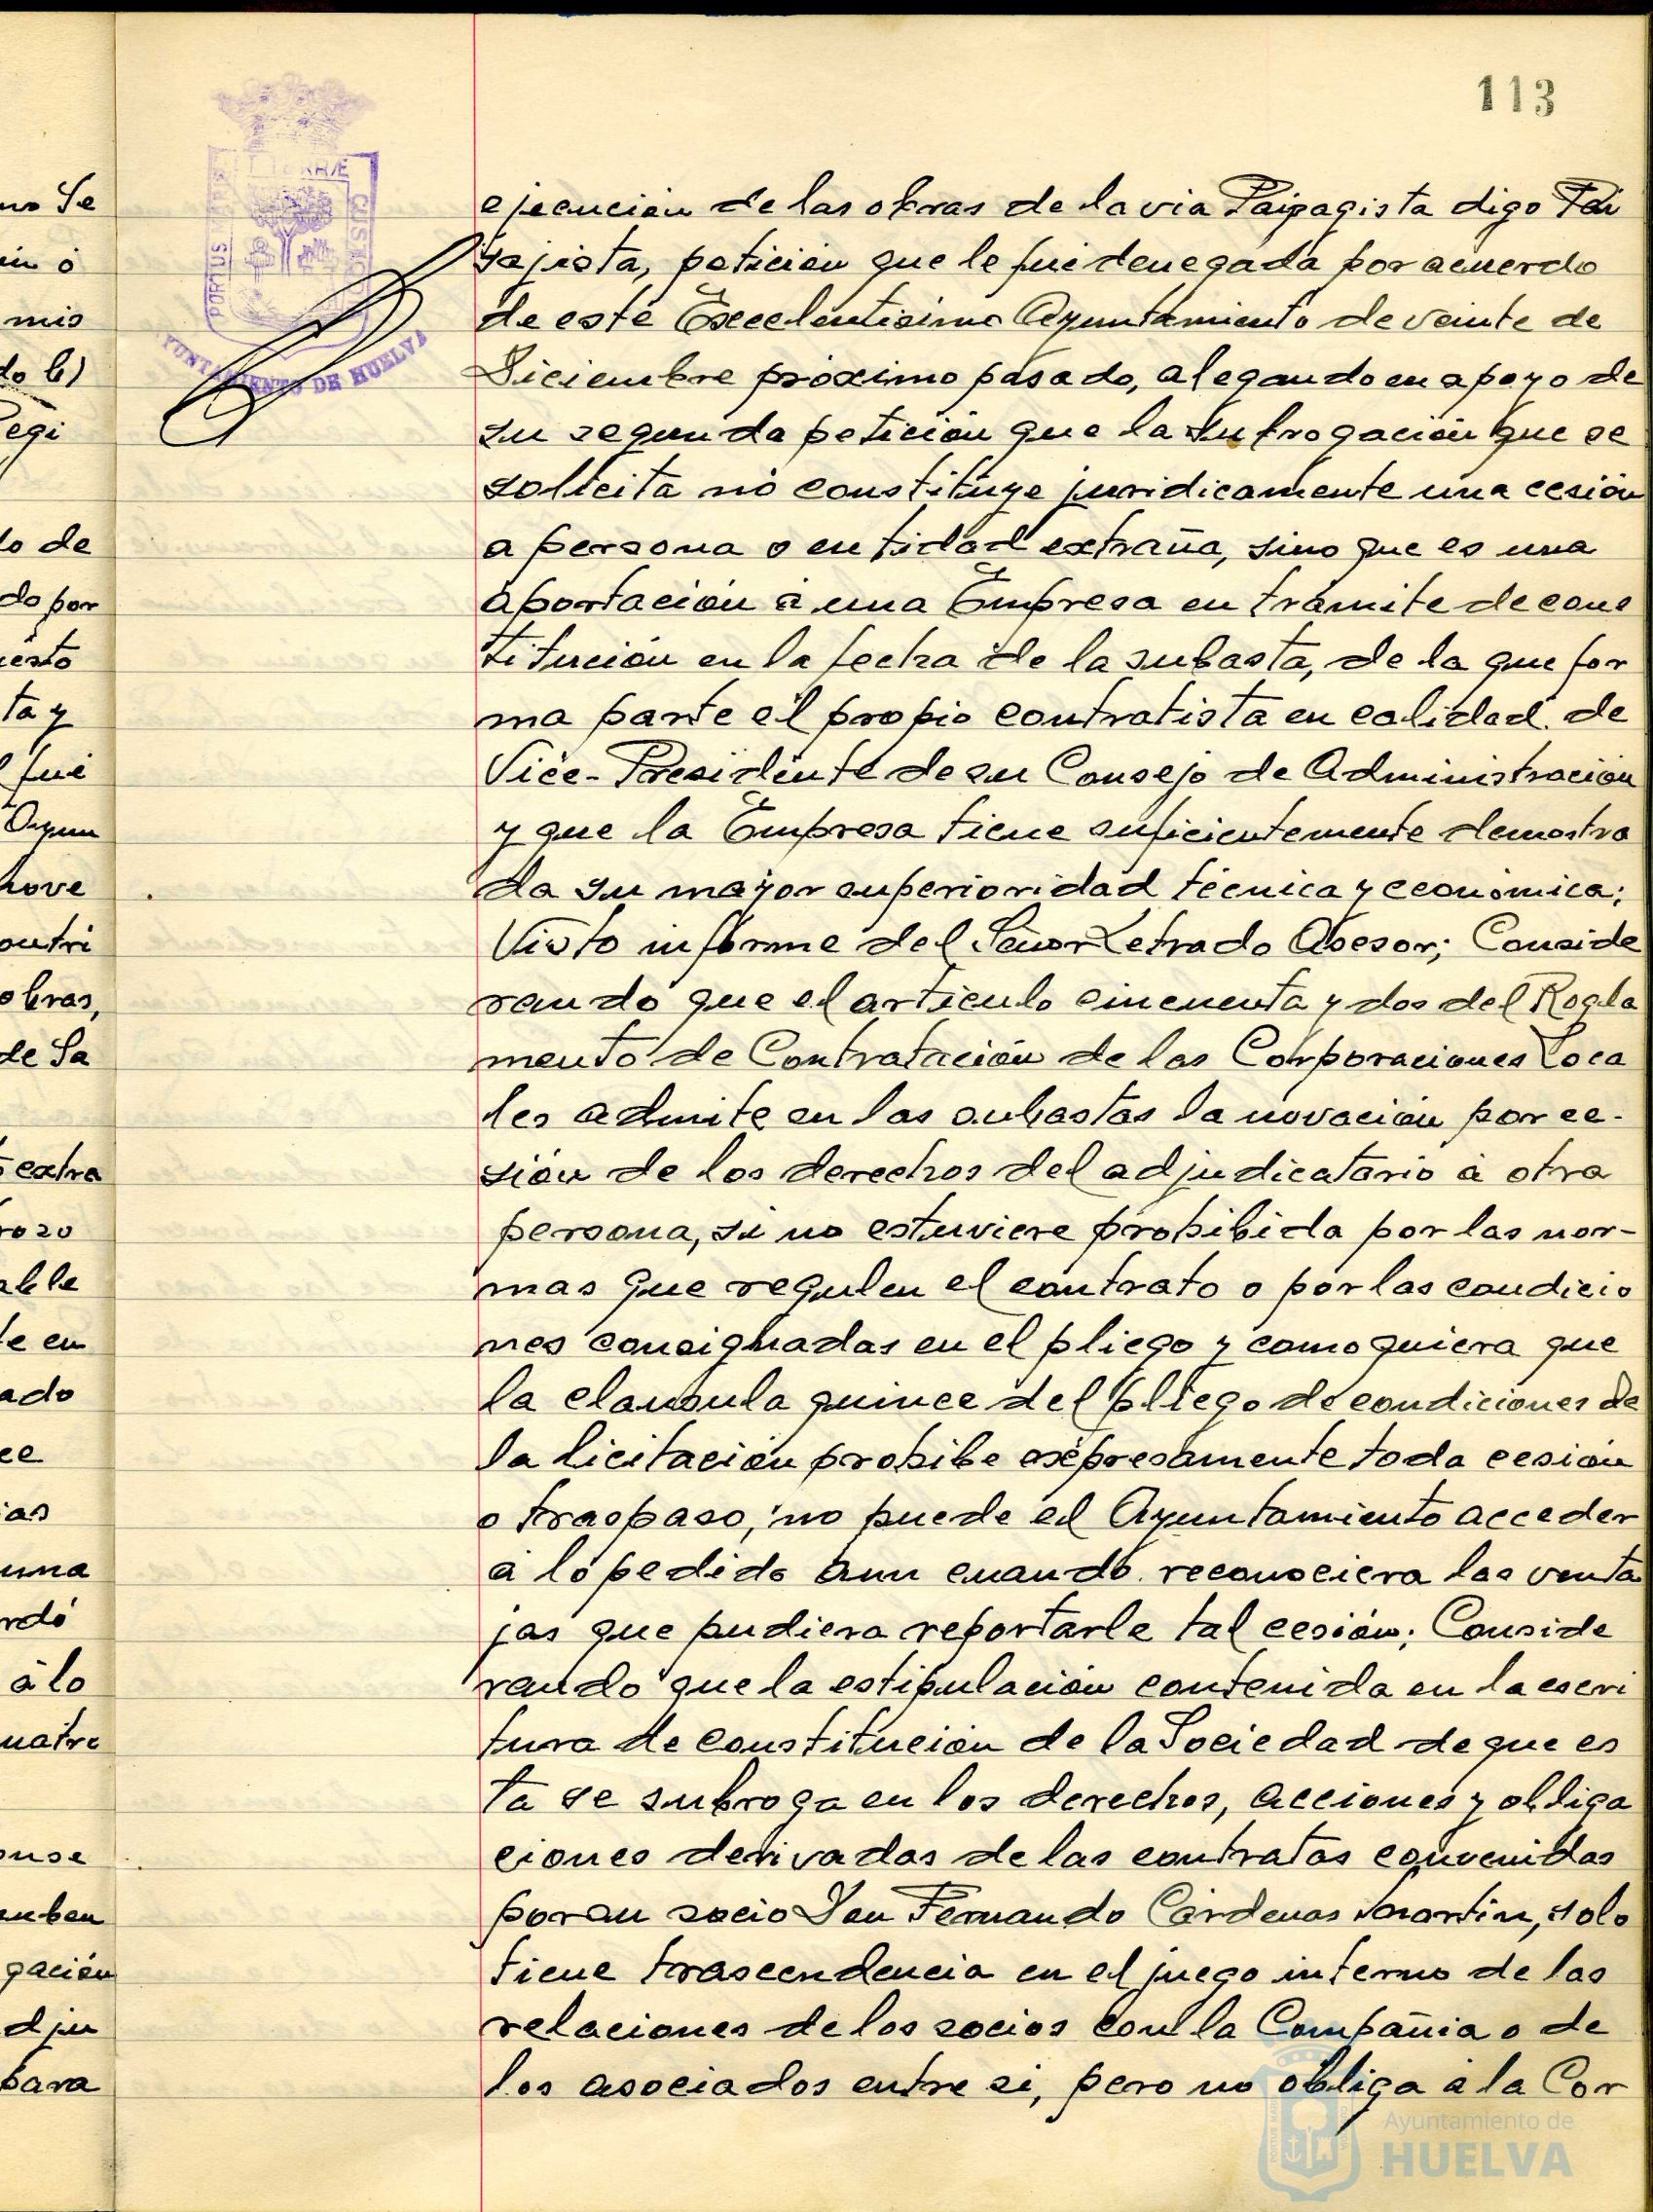 113
ejecución de las obras de la via Paipagista digo Pai
sajista, petición que le fué denegada por acuerdo
de este Excelentisimo Ayuntamiento de veinte de
Diciembre próximo pasado, alegando en apoyo de
su segunda petición que la subrogación que se
solicita no constituye juridicamente una cesión
a persona o entidad extraña, sino que es una
aportación á una Empresa en trámite de cons
titución en la fecha de la subasta, de la que for
ma parte el propio contratista en calidad de
Vice-Presidente de su Consejo de Administración
y que la Empresa tiene suficientemente demostra
da su mayor superioridad técnica y económica;
Visto informe del Señor Letrado Asesor; Conside
rando que el articulo cincuenta y dos del Regla
mento de Contratación de las Corporaciones Loca
les admite en las subastas la novación por ce-
sión de los derechos del adjudicatario á otra
persona, si no estuviere prohibida por las nor-
mas que regulen el contrato o por las condicio
nes consignadas en el pliego y como quiera que
la clausula quince del pliego de condiciones de
la licitación prohibe expresamente toda cesión
o traspaso, no puede el Ayuntamiento acceder
á lo pedido aun cuando reconociera las venta
jas que pudiera reportarle tal cesión; Conside
rando que la estipulación contenida en la escri
tura de constitución de la Sociedad de que es
ta se subroga en los derechos, acciones y obliga
ciones derivadas de las contratas convenidas
por su socio Don Fernando Cárdenas Martin, solo
tiene trascendencia en el juego interno de las
relaciones de los socios con la Compañia o de
los asociados entre si, pero no obliga á la Cor
PORTUS MARIS
CUSTODIA
AYUNTAMIENTO DE HUELVA
no Se
in ó
mis
do b)
Regi
lo de
do por
iesto
ta y
fué
Ayun
nove
ontri
obras,
de Sa
extra
rozo
able
te en
ado
ce
ias
una
rdó
á lo
uatro
onse
uben
gación
dju
para
Ayuntamiento de
HUELVA